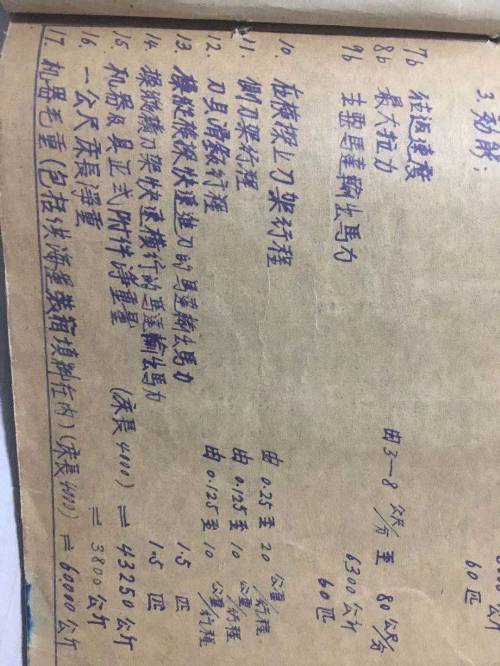 60 匹
3. 動能:
7b 往返速度 由 3—8 公尺/分 至 80 公尺/分
8b 最大拉力 6300 公斤
9b 主要馬達輸出馬力 60 匹
10. 在橫樑上刀架行程 由 0.25 至 20 公厘/行程
11. 側刀架行程 由 0.125 至 10 公厘/行程
12. 刀具滑板行程 由 0.125 至 10 公厘/行程
13. 操縱橫樑快速進刀的馬達輸出馬力 1.5 匹
14. 操縱橫刀架快速橫行的馬達輸出馬力 1.5 匹
15. 机器及其正式附件淨重量 (床長4000) = 43250 公斤
16. 一公尺床長淨重 = 3800 公斤
17. 机器毛重(包括 海運裝箱填料在內)(床長4000) = 60000 公斤